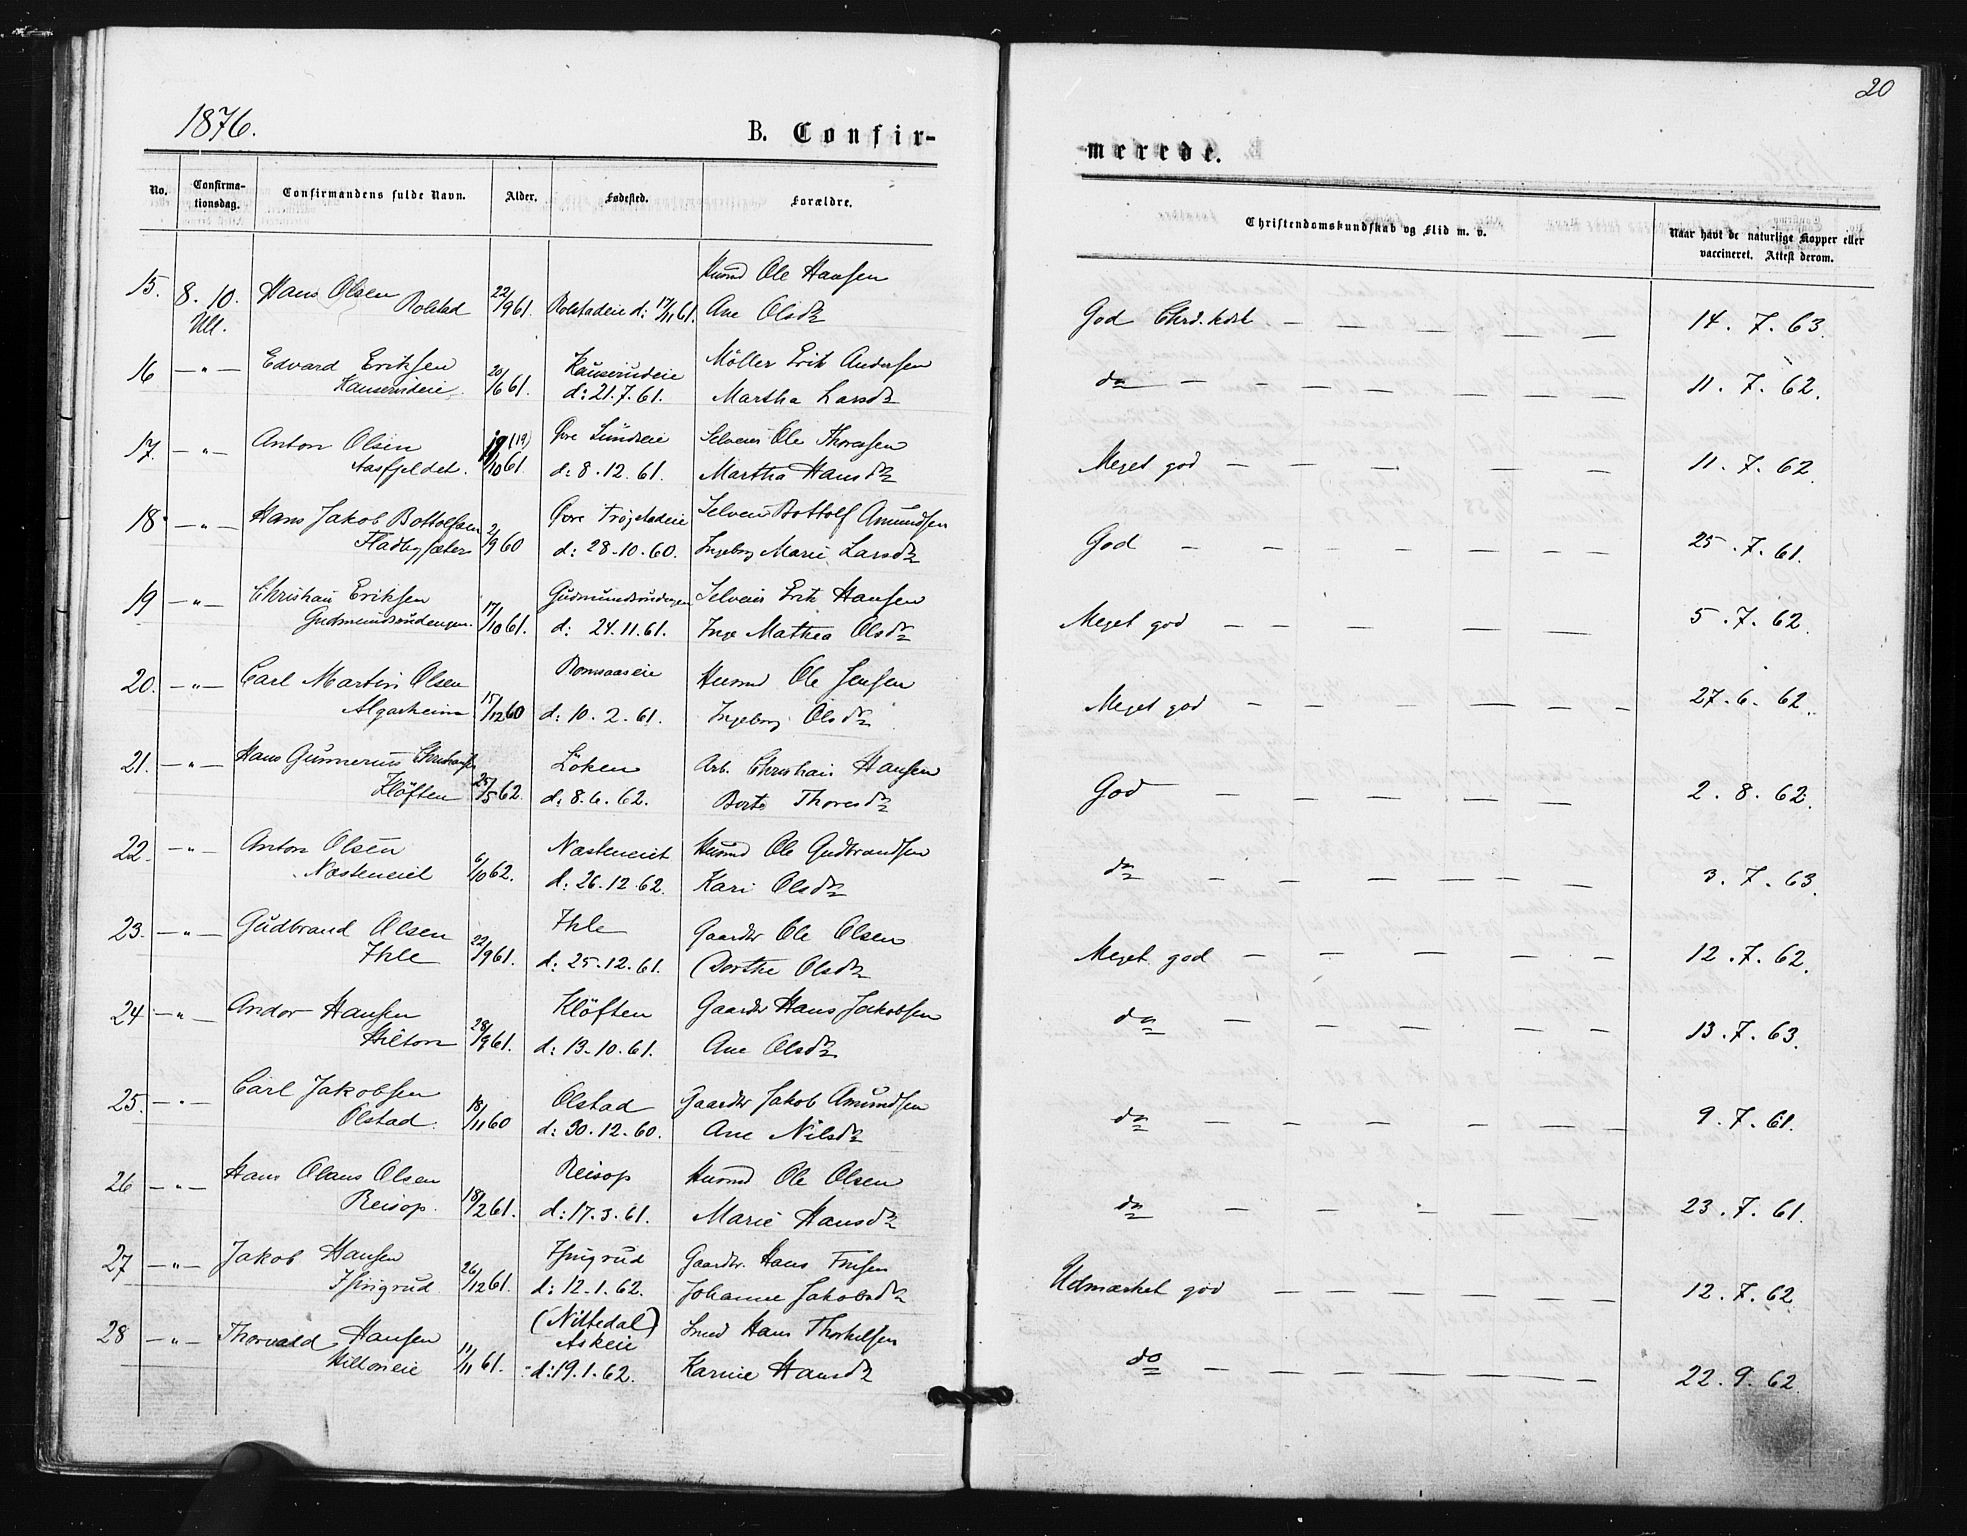 20
1876.
B. Confir-
merede.
No.
Confirma-
tionsdag.
Confirmandens fulde Navn.
Alder.
Fødested.
Forældre.
Christendomskundskab og Flid m. v.
Naar havt de naturlige Kopper eller
vaccineret. Attest derom.
15. 8. 10. Hans Olsen 22/9 61. Husmd Ole Hansen
Ull. Rolstad Rolstadeie d: 17/11 61. Ane Olsdr
God Chrd. kdsk. — — — — — 14. 7. 63.
16 — „ — Edvard Eriksen 20/6 61. Hauserudeie Möller Erik Andersen
Hauserudeie. d: 21.7.61. Martha Larsdr
do — — — — — — 11. 7. 62.
17. — „ — Anton Olsen 19 (19)/10 61. Øvre Sundseie Selveier Ole Thoresen
Aasfjeldet. d: 8.12.61. Martha Hansdr
Meget god — — — — — — 11. 7. 62.
18. — „ — Hans Jakob Bottolfsen 2/9 60 Øvre Trøgstadeie Selveier Bottolf Amundsen
Fladbysæter d: 28.10.60. Ingeborg Marie Larsdr
God — — — — — — 25. 7. 61.
19 — „ — Christian Eriksen 17/10 61. Gudmundsrudengen Selveier Erik Hansen
Gudmundsrudengen. d: 24.11.61. Inge Mathea Olsdr
Meget god — — — — — 5. 7. 62.
20. — „ — Carl Martin Olsen 15/12 60 Romsaaseie Husmd Ole Jensen
Algarheim d: 10.2.61. Ingeborg Olsdr
Meget god — — — — — 27. 6. 62.
21. — „ — Hans Gunnerius Christiansen 25/5 62. Löken Arb. Christian Hansen
Klöften d: 8.6.62. Berte Thoresdr
God — — — — — — 2. 8. 62.
22. — „ — Anton Olsen 6/10 62. Næsteneiet Husmd Ole Gudbrandsen
Næsteneiet d: 26.12.62. Kari Olsdr
do — — — — — — 3. 7. 63.
23. — „ — Gudbrand Olsen 22/9 61. Ihle Gaardbr Ole Olsen
Ihle d: 25.12.61. Dorthe Olsdr
Meget god — — — — — 12. 7. 62.
24 — „ — Andor Hansen 28/9 61. Klöften Gaardbr Hans Jakobsen
Hilton d: 13.10.61. Ane Olsdr
do — — — — — — 13. 7. 63.
25. — „ — Carl Jakobsen 18/11 60 Olstad Gaardbr Jakob Amundsen
Olstad. d: 30.12.60. Ane Nilsdr
do — — — — — — 9. 7. 61.
26 — „ — Hans Olaus Olsen 18/2 61. Reisop Husmd Ole Olsen
Reisop. d: 17.3.61. Marie Hansdr
do — — — — — 23. 7. 61.
27 — „ — Jakob Hansen 26/12 61. Isingrud Gaardbr. Hans
Isingrud d: 12.1.62. Johanne Jakobsdr
Udmærket god — — — — — 12. 7. 62.
28 — „ — Thorvald Hansen 11/11 61. (Nittedal) Smed Hans Thorkelsen
Askeie
Hiltoneie d: 19.1.62. Karine Hansdr
do — — — — — — 22. 9. 62.